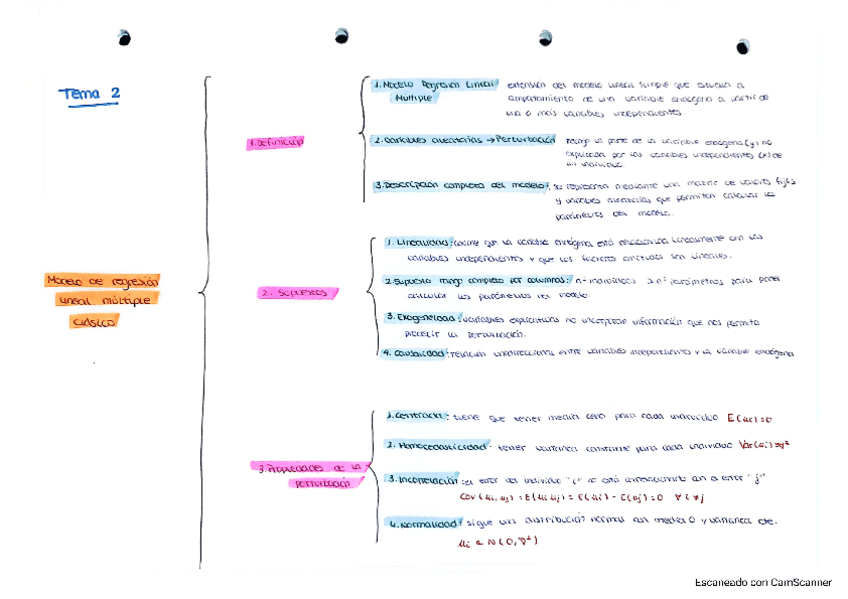 Tema 2
Modelo de regresión
lineal múltiple
clásico
1. Definición
1. Modelo Regresion Lineal
Multiple
extensión del modelo lineal simple que estudia el
comportamiento de una variable endógena a partir de
una o más variables independientes.
2. Variables aleatorias → Perturbación
recoge la parte de la variable endógena (y) no
explicada por las variables independientes (x) de
un individuo.
3. Descripción completa del modelo:
se representa mediante una matriz de valores fijos
y variables aleatorias que permiten calcular los
parámetros del modelo.
2. Supuestos
1. Linealidad: que la variable endógena está relacionada linealmente con las
variables independientes y que los factores son lineales.
2. Supuesto rango completo por columnas: nº individuos > nº parámetros para poder
calcular los parámetros del modelo.
3. Exogeneidad: variables explicativas no incorporan información que nos permita
predecir la perturbación.
4. Causalidad: relación unidireccional entre variables independientes y la variable endógena
3. Propiedades de la
perturbación
1. Centrada: tiene que tener media cero para cada individuo E(ui)=0
2. Homocedasticidad: tener varianza constante para cada individuo Var(ui)=σ²
3. Incorrelación: el error del individuo "i" no está correlacionado con el error "j"
Cov(ui,uj)=E(ui uj)=E(ui)-E(uj)=0 ∀ i≠j
4. Normalidad: sigue una distribución normal con media 0 y varianza cte.
ui ~ N(0,σ²)
Escaneado con CamScanner